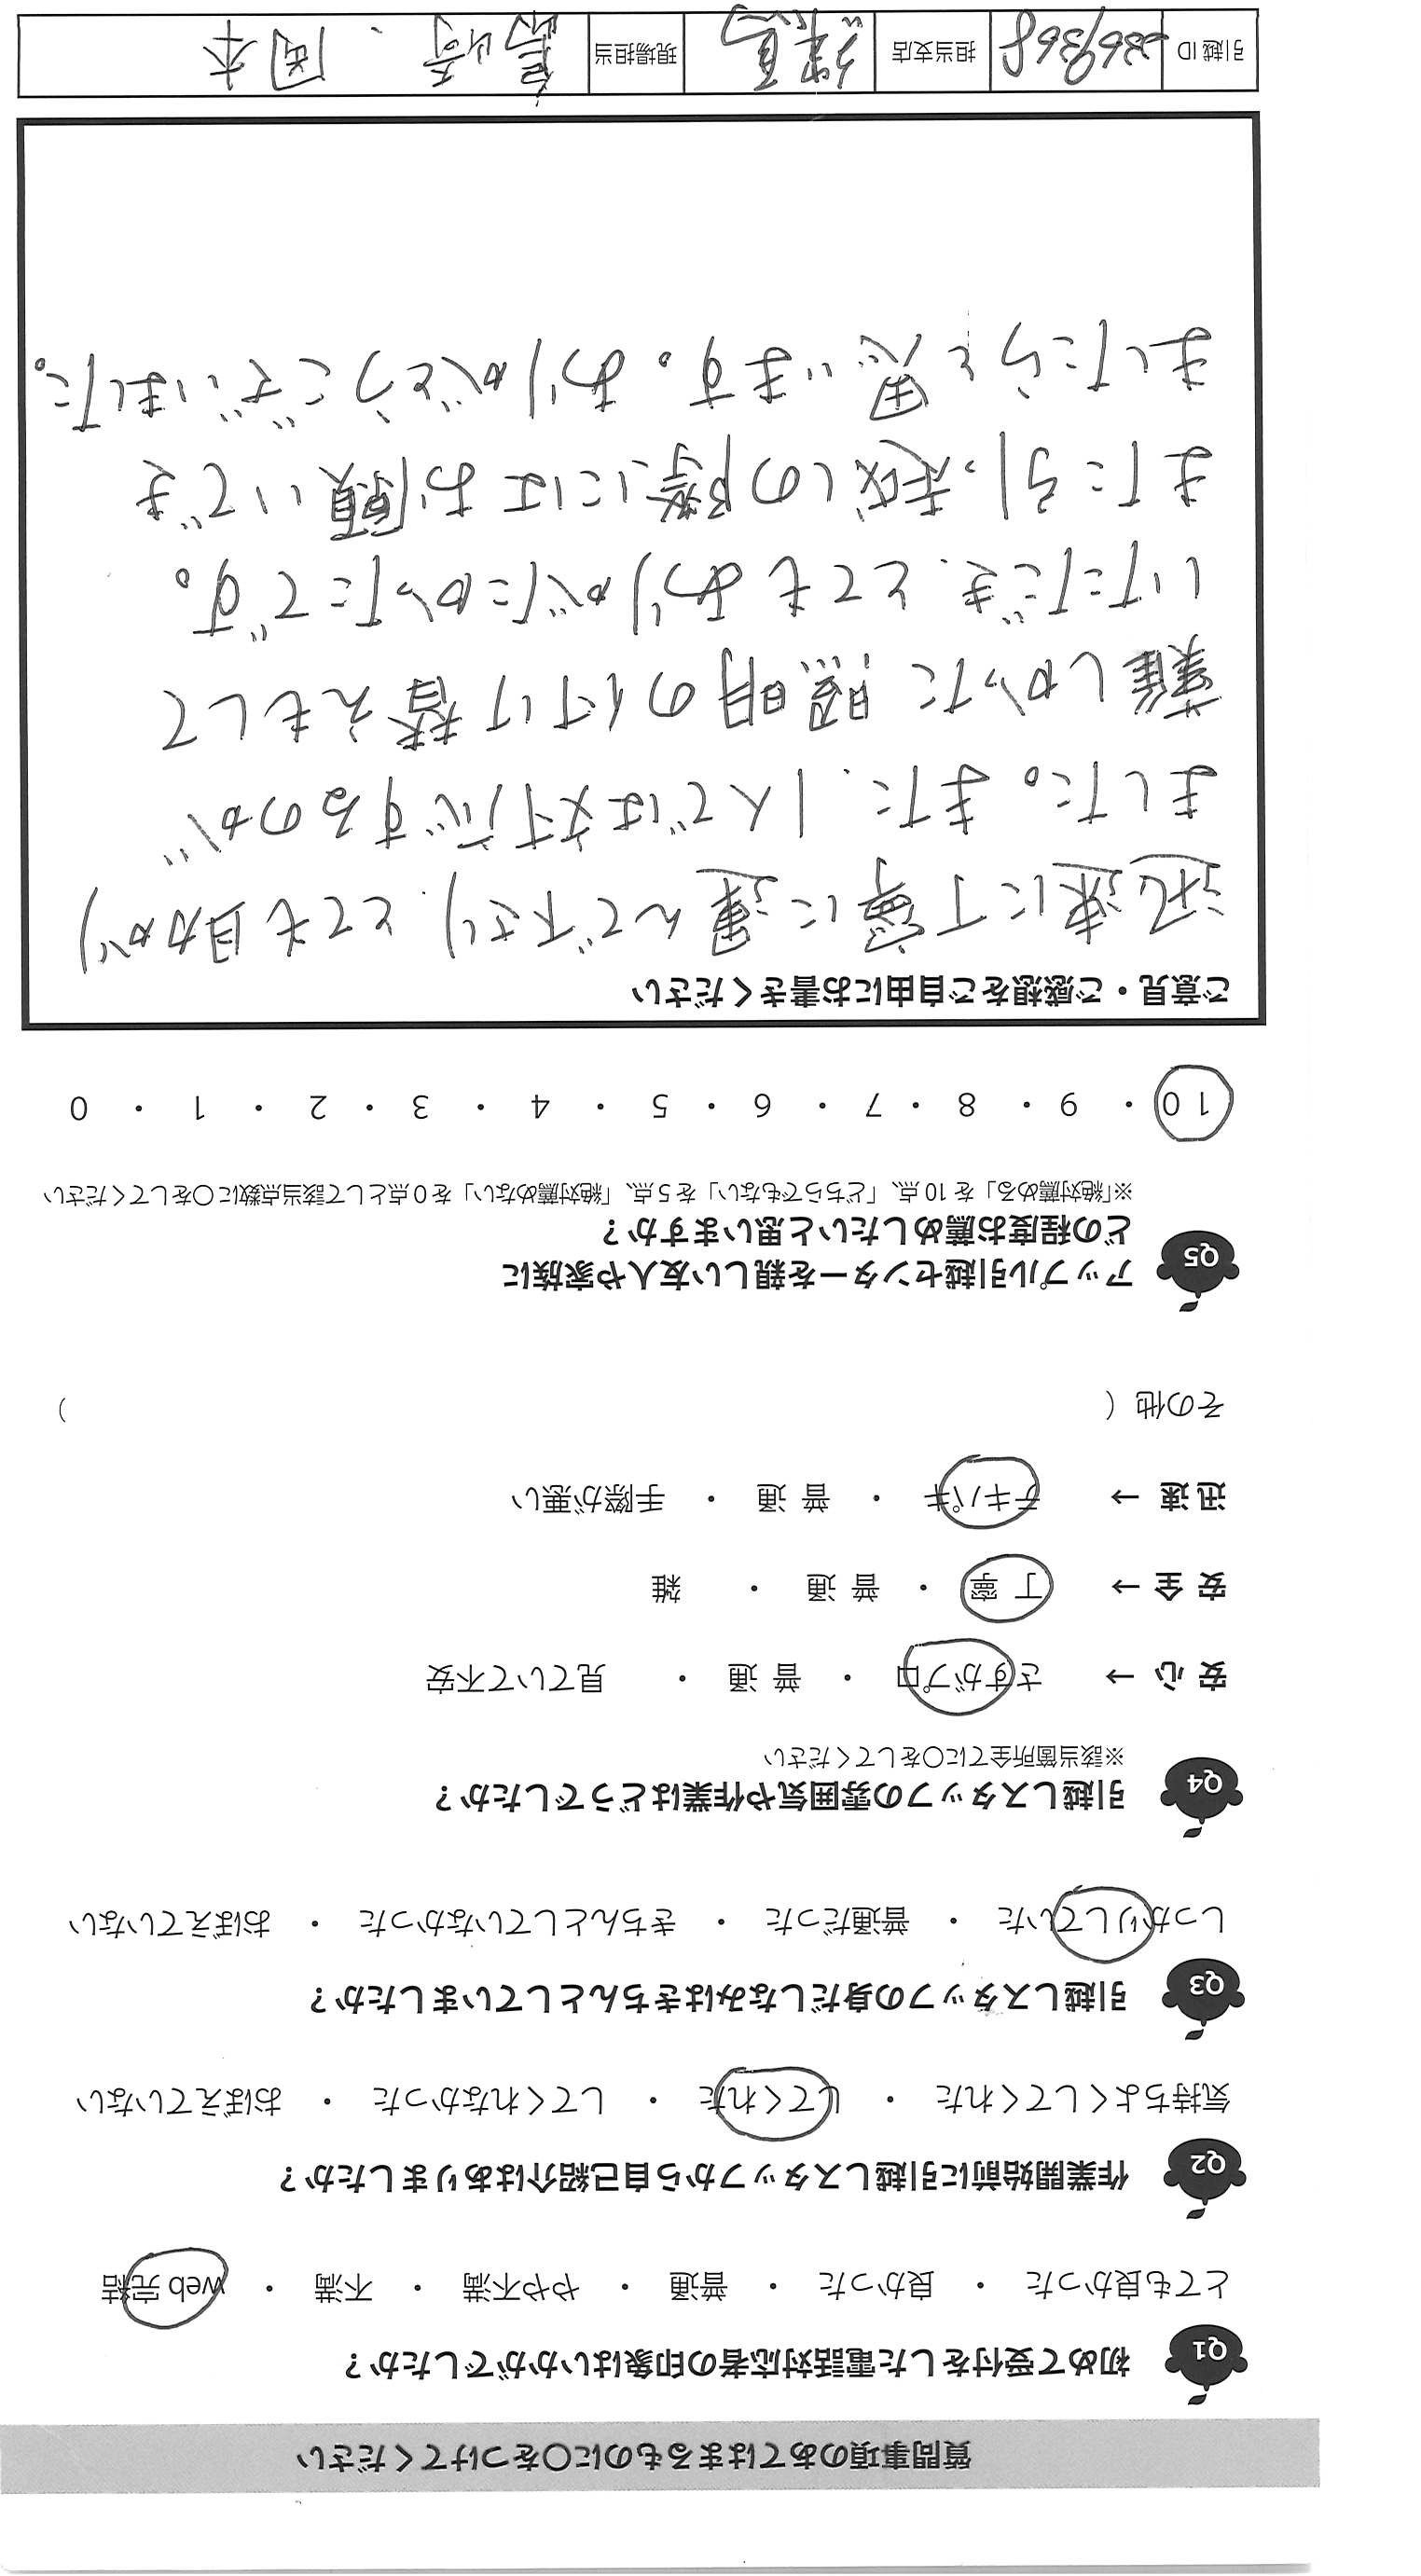 質問事項のあてはまるものに〇をつけてください
Q1 初めて受付をした電話対応者の印象はいかがでしたか？
とても良かった ・ 良かった ・ 普通 ・ やや不満 ・ 不満 ・ web 完結
Q2 作業開始前に引越しスタッフから自己紹介はありましたか？
気持ちよくしてくれた ・ してくれた ・ してくれなかった ・ おぼえていない
Q3 引越しスタッフの身だしなみはきちんとしていましたか？
しっかりしていた ・ 普通だった ・ きちんとしていなかった ・ おぼえていない
Q4 引越しスタッフの雰囲気や作業はどうでしたか？
※該当箇所全てに〇をしてください
安 心 → さすがプロ ・ 普 通 ・ 見ていて不安
安 全 → 丁 寧 ・ 普 通 ・ 雑
迅 速 → テキパキ ・ 普 通 ・ 手際が悪い
その他（ ）
Q5 アップル引越センターを親しい友人や家族に
どの程度お薦めしたいと思いますか？
※「絶対薦める」を 10 点、「どちらでもない」を 5 点、「絶対薦めない」を 0 点として該当点数に〇をしてください
10 ・ 9 ・ 8 ・ 7 ・ 6 ・ 5 ・ 4 ・ 3 ・ 2 ・ 1 ・ 0
ご意見・ご感想をご自由にお書きください
迅速に丁寧に運んで下さり、とても助かり
ました。また、1人では対応するのが
難しかった照明の付け替えもして
いただき、とてもありがたかったです。
また引っ越しの際にはお願いでき
ましたらと思います。ありがとうございました。
引越 ID 担当支店 練馬 現場担当 島崎、岡本